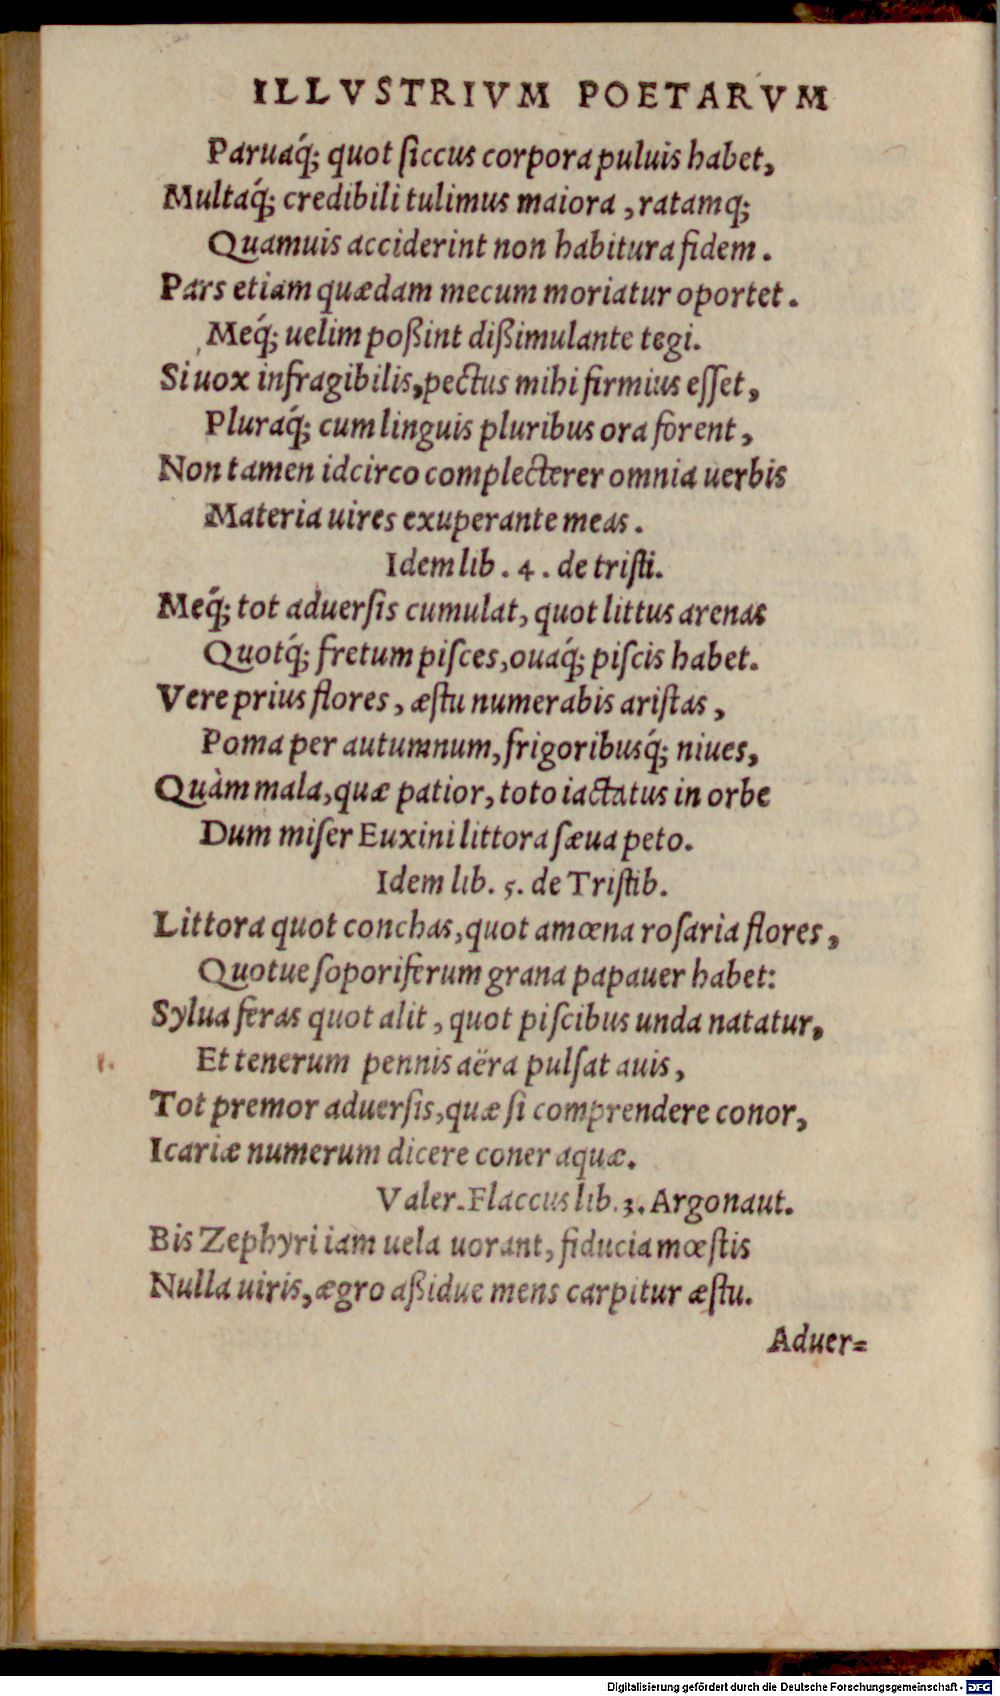 ILLVSTRIVM POETARVM
Paruaq́; quot ſiccus corpora puluis habet,
Multaq́; credibili tulimus maiora, ratamq;
Quamuis acciderint non habitura fidem.
Pars etiam quædam mecum moriatur oportet.
Meq́; uelim poßint dißimulante tegi.
Si uox infragibilis, pectus mihi firmius eſſet,
Pluraq́; cum linguis pluribus ora forent,
Non tamen idcirco complecterer omnia uerbis
Materia uires exuperante meas.
Idem lib. 4. de triſti.
Meq́; tot aduerſis cumulat, quot littus arenas
Quotq́; fretum piſces, ouaq́; piſcis habet.
Vere prius flores, æſtu numerabis ariſtas,
Poma per autumnum, frigoribusq́; niues,
Quàm mala, quæ patior, toto iactatus in orbe
Dum miſer Euxini littora ſæua peto.
Idem lib. 5. de Triſtib.
Littora quot conchas, quot amœna roſaria flores,
Quotue ſoporiferum grana papauer habet:
Sylua feras quot alit, quot piſcibus unda natatur,
Et tenerum pennis aëra pulſat auis,
Tot premor aduerſis, quæ ſi comprendere conor,
Icariæ numerum dicere coner aquæ.
Valer. Flaccus lib. 3. Argonaut.
Bis Zephyri iam uela uorant, fiducia mœſtis
Nulla uiris, ægro aßidue mens carpitur æſtu.
Aduer=
Digitalisierung gefördert durch die Deutsche Forschungsgemeinschaft - DFG